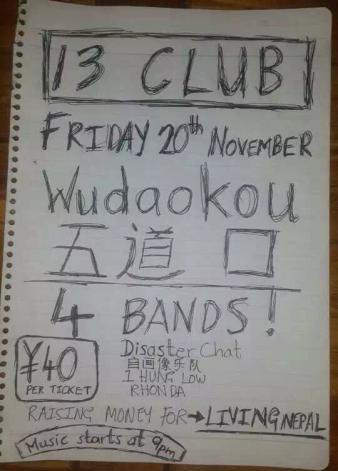 13 CLUB
FRIDAY 20th NOVEMBER
Wudaokou
五道口
4 BANDS!
¥40
PER TICKET
Disaster Chat
自画像乐队
I HUNG LOW
RHONDA
RAISING MONEY FOR → LIVING NEPAL
Music starts at 9pm